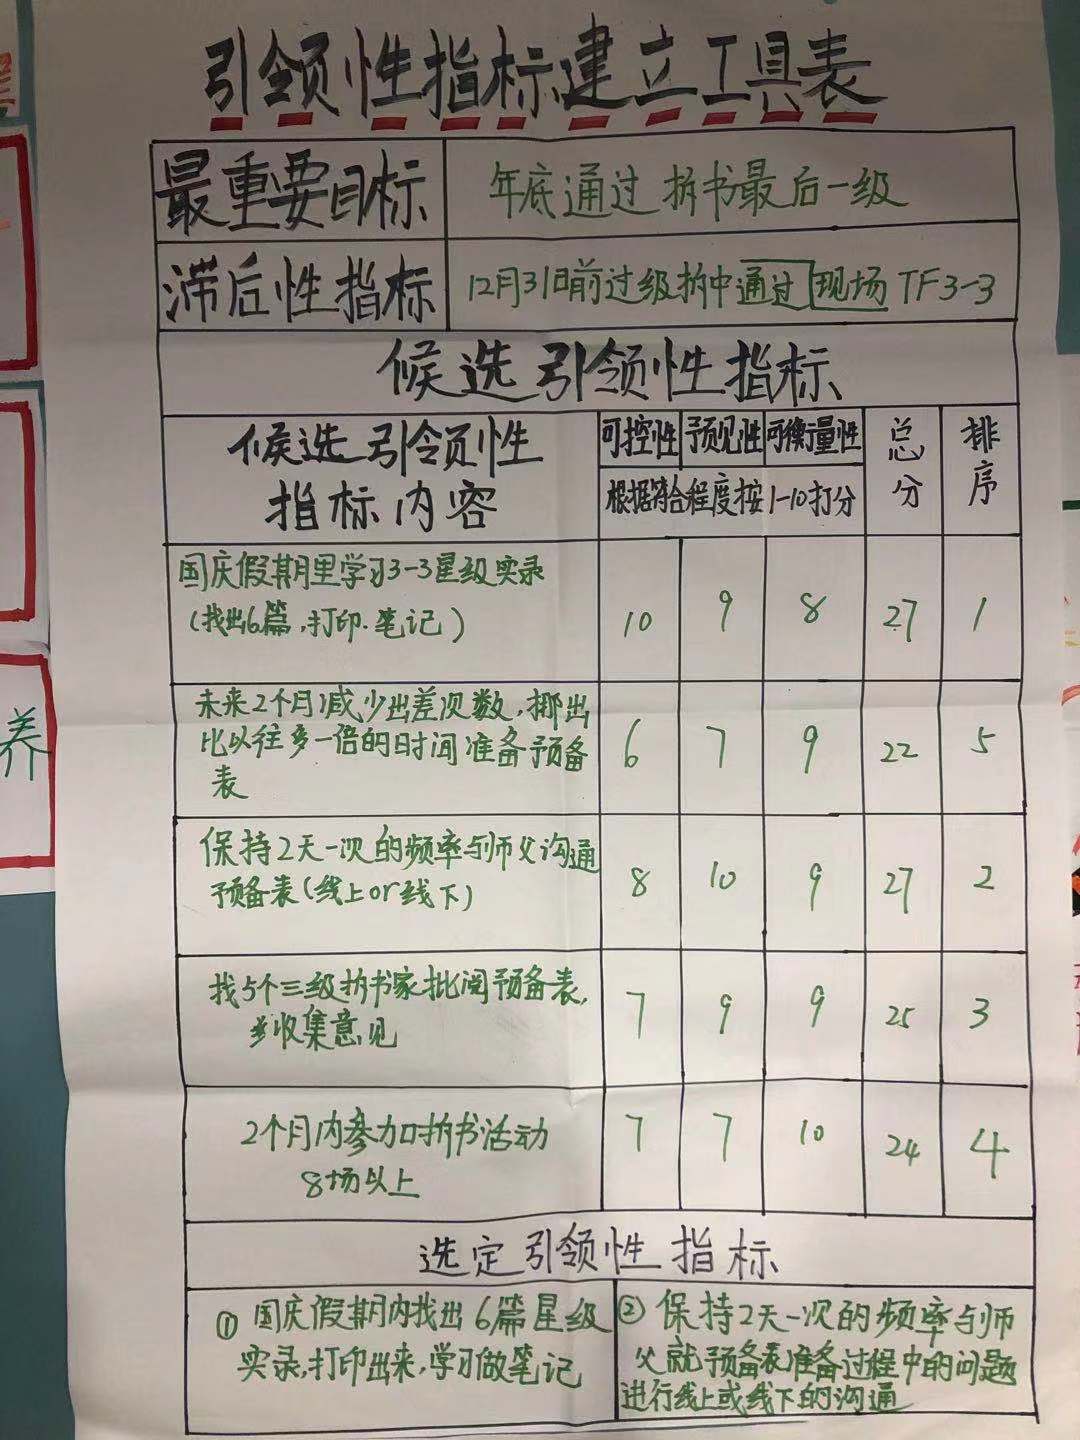 引领性指标建立工具表
最重要目标
年底通过拆书最后一级
滞后性指标
12月31日前过级拆中通过现场TF3-3
候选引领性指标
候选引领性
指标内容
可控性 预见性 可衡量性
根据符合程度按1-10打分
总分
排序
国庆假期里学习3-3星级实录
(找出6篇,打印.笔记)
10 9 8 27 1
未来2个月减少出差次数,挪出
比以往多一倍的时间准备预备
表
6 7 9 22 5
保持2天一次的频率与师父沟通
预备表(线上or线下)
8 10 9 27 2
找5个三级拆书家批阅预备表,
并收集意见
7 9 9 25 3
2个月内参加拆书活动
8场以上
7 7 10 24 4
选定引领性指标
① 国庆假期内找出6篇星级
实录,打印出来,学习做笔记
② 保持2天一次的频率与师
父就预备表准备过程中的问题
进行线上或线下的沟通
养